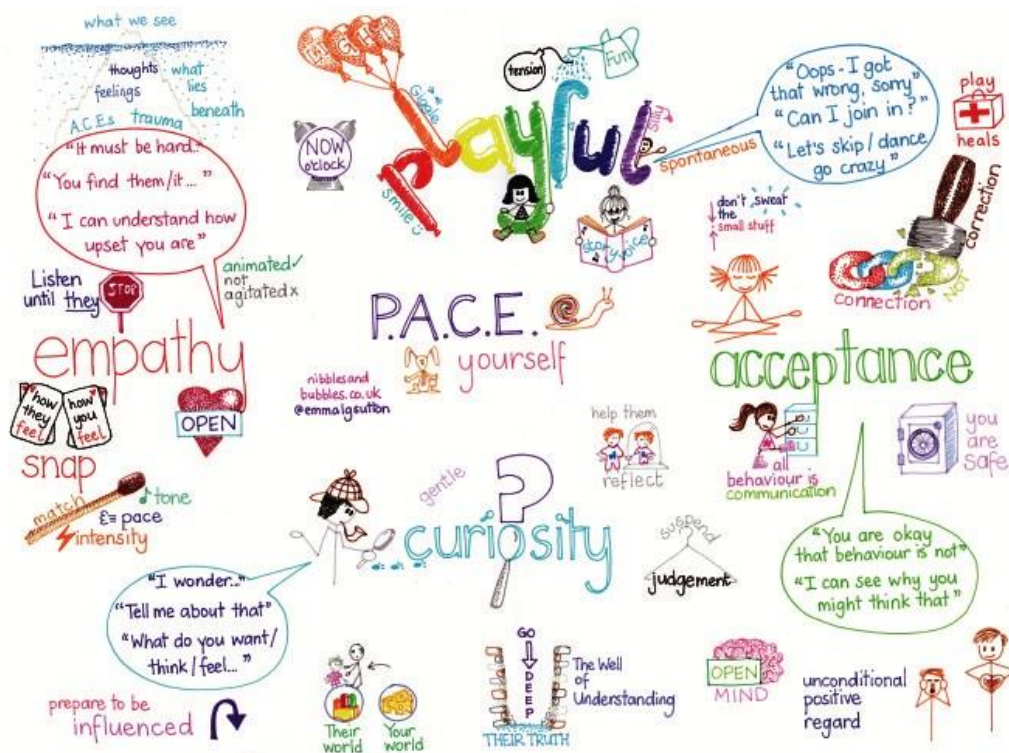 what we see
thoughts
feelings
what
lies
beneath
A.C.Es
trauma
"It must be hard.."
"You find them/it..."
"I can understand how
upset you are"
Listen
until they
STOP
animated ✓
not
agitated x
empathy
how
they
feel
how
you
feel
OPEN
snap
match
tone
pace
intensity
LIGHT
Giggle
NOW
o'clock
Playful
smile
tension
Fun
silly
spontaneous
story voice
"Oops - I got
that wrong, sorry"
"Can I join in?"
"Let's skip/dance
go crazy"
play
heals
don't sweat
the
small stuff
correction
connection
NOT
P.A.C.E.
yourself
nibblesand
bubbles.co.uk
@emmalgsutton
acceptance
help them
reflect
all
behaviour is
communication
you
are
safe
gentle
?
curiosity
suspend
judgement
"You are okay
that behaviour is not"
"I can see why you
might think that"
"I wonder.."
"Tell me about that"
"What do you want/
think/feel..."
prepare to be
influenced
Their
world
Your
world
GO
DEEP
THEIR TRUTH
The Well
of
Understanding
OPEN
MIND
unconditional
positive
regard